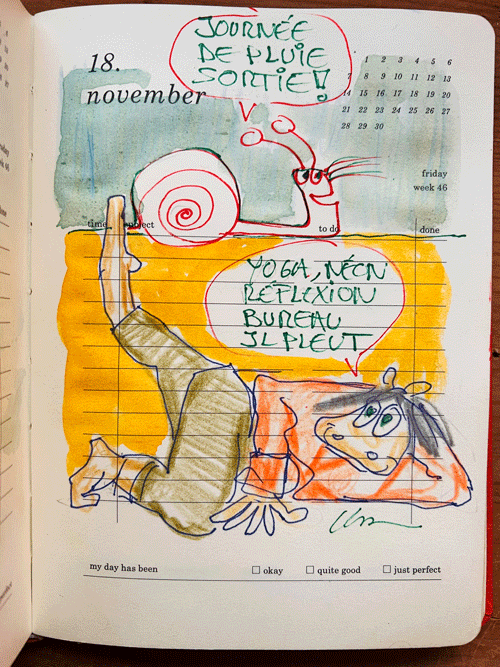 JOURNÉE
DE PLUIE
SORTIE!
18.
november
1 2 3 4 5 6
7 8 9 10 11 12 13
14 15 16 17 18 19 20
21 22 23 24 25 26 27
28 29 30
friday
week 46
time project to do done
YOGA, NÉCN
REFLEXION
BUREAU
JL PLEUT
my day has been okay quite good just perfect